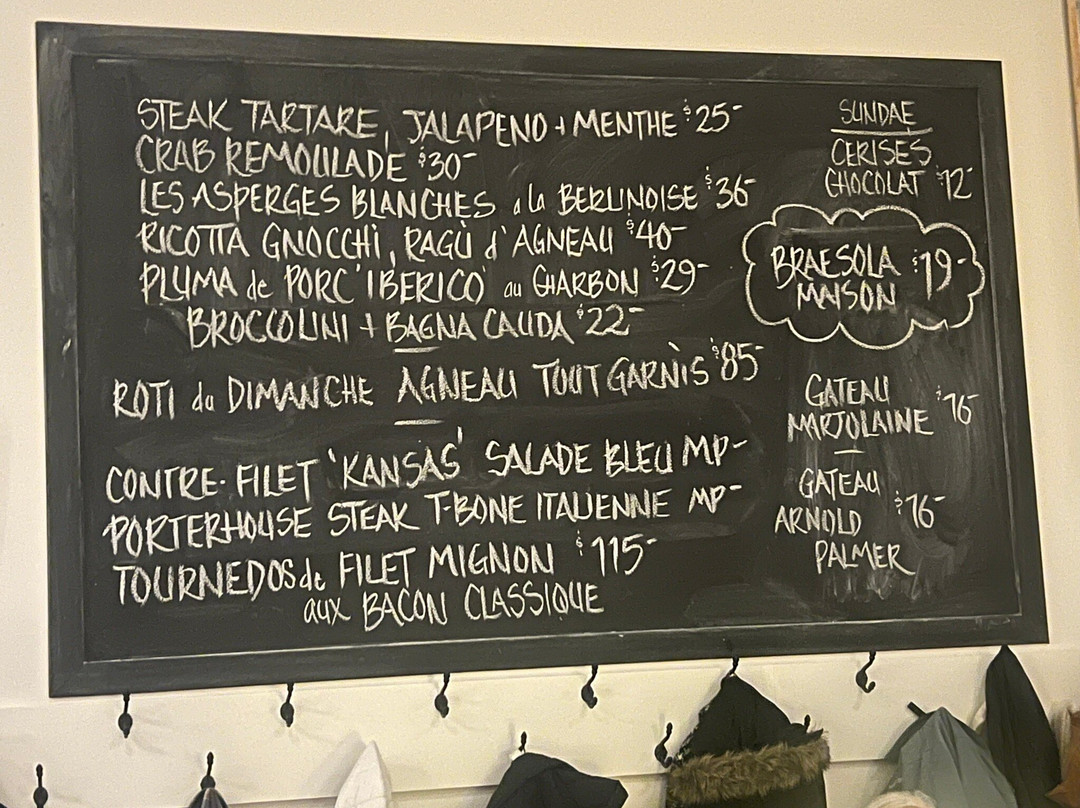 STEAK TARTARE, JALAPENO + MENTHE $25-
CRAB REMOULADE $30-
LES ASPERGES BLANCHES a la BERLINOISE $36
RICOTTA GNOCCHi, RAGÙ d'AGNEAU $40-
PLUMA de PORC 'IBERICO' au CHARBON $29-
BROCCOLINI + BAGNA CAUDA $22-
ROTI du DIMANCHE AGNEAU TOUT GARNÌS $85-
CONTRE-FILET 'KANSAS' SALADE BLEU MP-
PORTERHOUSE STEAK T-BONE ITALIENNE MP-
TOURNEDOS de FILET MIGNON $115-
aux BACON CLASSIQUE
SUNDAE
CERISES
CHOCOLAT $12-
BRAESOLA $19-
MAISON
GATEAU $16-
MARJOLAINE
GATEAU
ARNOLD $16-
PALMER